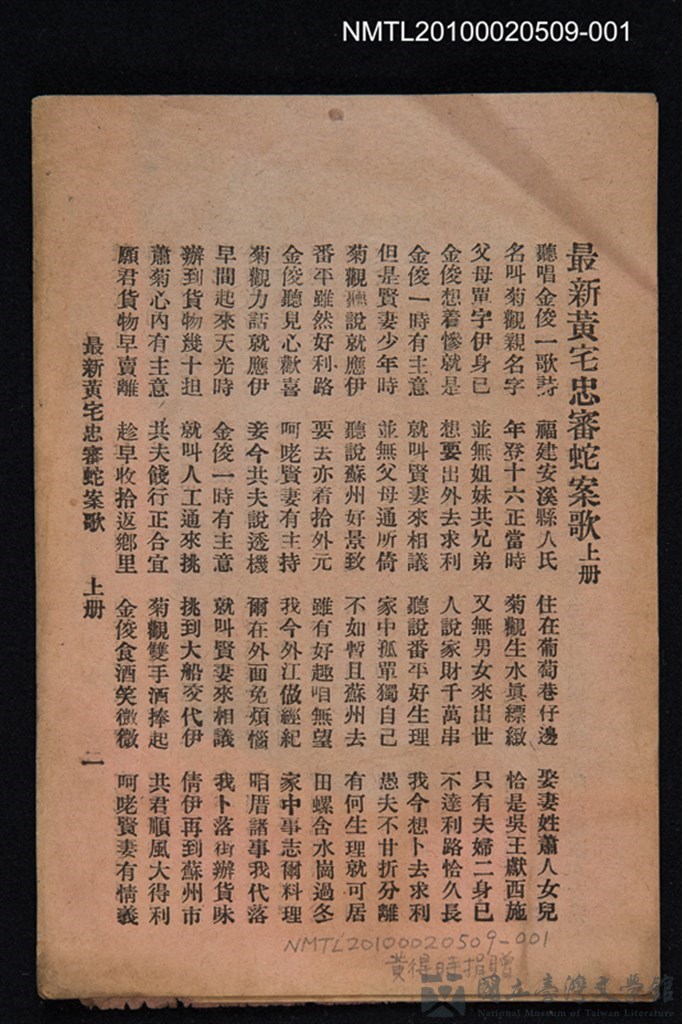 NMTL20100020509-001
最新黃宅忠審蛇案歌上册
聽唱金俊一歌詩 福建安溪縣人氏 住在葡萄巷仔邊 娶妻姓蕭人女兒
名叫菊觀親名字 年登十六正當時 菊觀生水真縹緻 恰是吳王獻西施
父母單字伊身已 並無姐妹共兄弟 又無男女來出世 只有夫婦二身已
金俊想着慘就是 想要出外去求利 人說家財千萬串 不達利路恰久長
金俊一時有主意 就叫賢妻來相議 聽說番平好生理 我今想卜去求利
但是賢妻少年時 並無父母通所倚 家中孤單獨自己 愚夫不甘折分離
菊觀聽說就應伊 聽說蘇州好景致 不如暫且蘇州去 有何生理就可居
番平雖然好利路 要去亦着拾外元 雖有好趣咱無望 田螺含水崗過冬
金俊聽見心歡喜 呵咾賢妻有主持 我今外江做經紀 家中事志爾料理
菊觀力話就應伊 妾今共夫說透機 爾在外面免煩惱 咱厝諸事我代落
早間起來天光時 金俊一時有主意 就叫賢妻來相議 我卜落街辦貨味
辦到貨物幾十担 就叫人工通來挑 挑到大船交代伊 倩伊再到蘇州市
蕭菊心內有主意 共夫餞行正合宜 菊觀雙手酒捧起 共君順風大得利
願君貨物早賣離 趁早收拾返鄉里 金俊食酒笑微微 呵咾賢妻有情義
最新黃宅忠審蛇案歌 上册 二
NMTL20100020509-001
黃得時捐贈
國立臺灣文學館
National Museum of Taiwan Literature